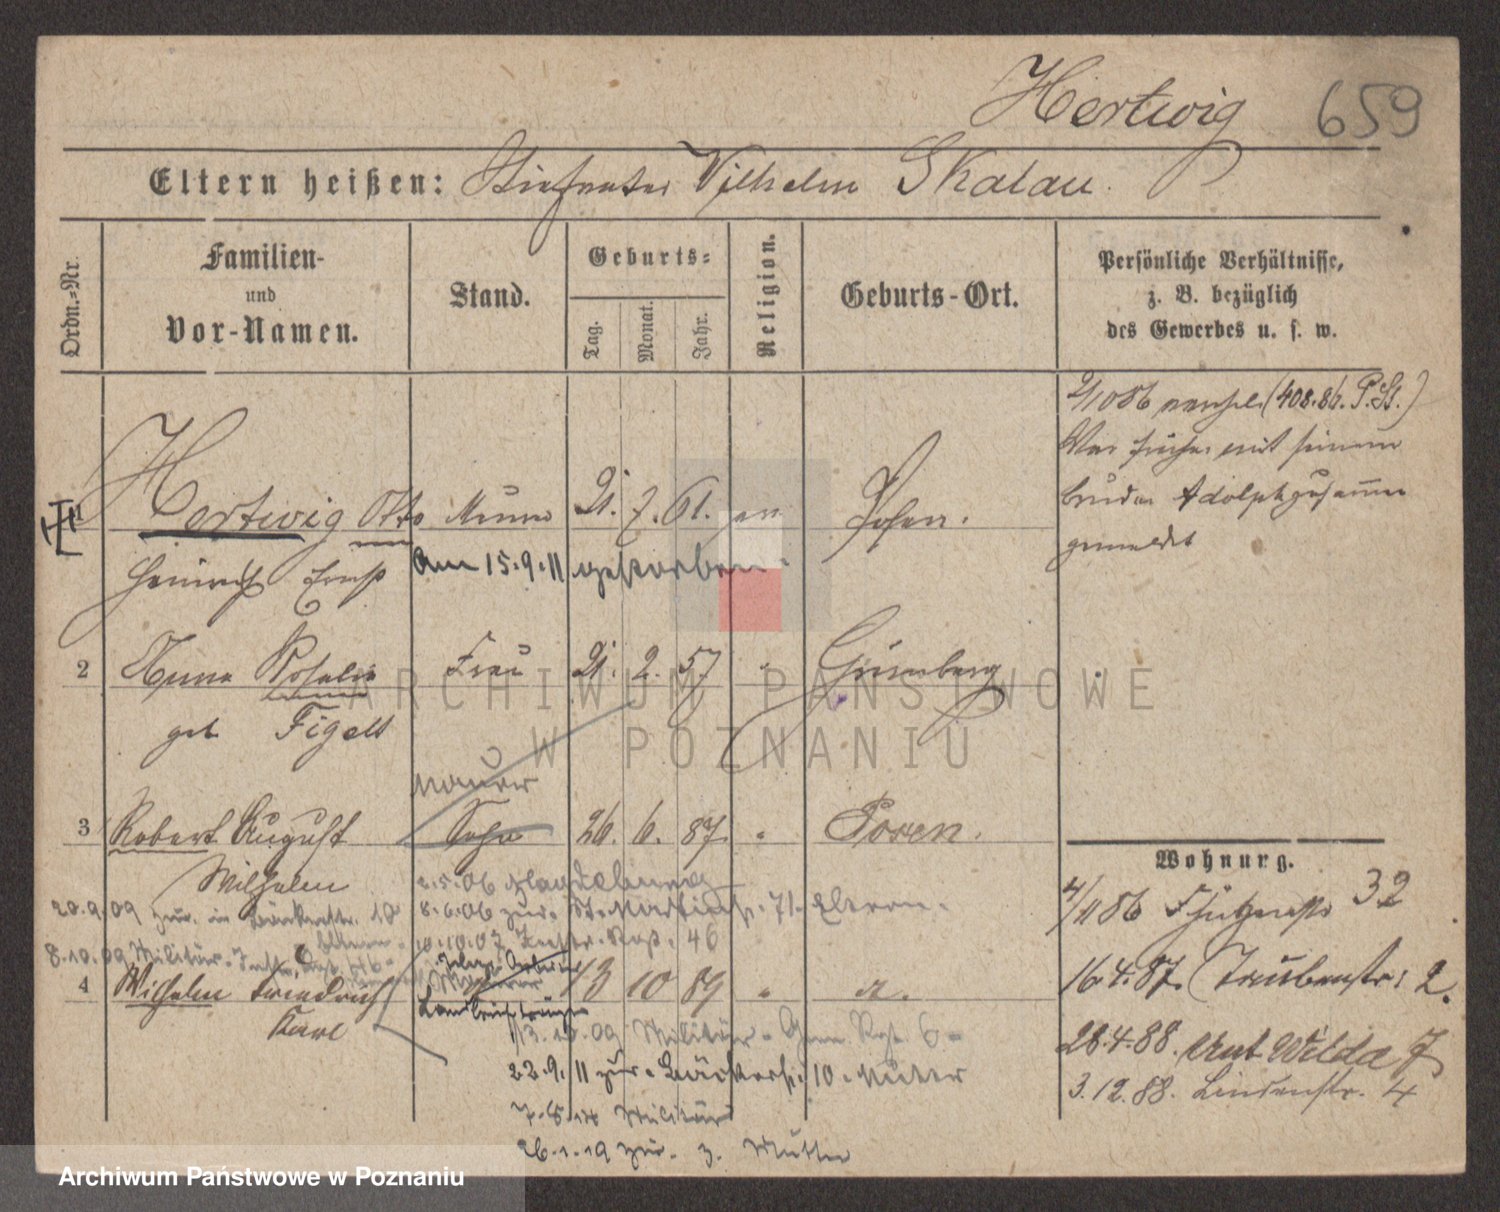 Hertwig 659
Eltern heißen: Stiefvater Wilhelm Skalau.
Ordn.=Nr.
Familien-
und
Vor-Namen.
Stand.
Geburts=
Tag.
Monat.
Jahr.
Religion.
Geburts-Ort.
Persönliche Verhältnisse,
z. B. bezüglich
des Gewerbes u. s. w.
(408.86. P.St.)
War früher mit seinem
Bruder Adolph zusammen
gemeldet
1 Hertwig Otto 21. 7. 61. ev Posen.
Heinrich Ernst
Am 15.9.11 gestorben.
2 Anna Rosalie Frau 21. 2. 57 " Grünberg
geb Figelt
Maurer
3 Robert August Sohn 26. 6. 87. " Posen.
Wilhelm
2.5.06 Magdeburg
8.6.06 zur. St. Martinstr. 71. Eltern.
20.9.09 zur. in Bäckerstr. 10
10.10.07 46
8.10.09 Militär.
4 Wilhelm Friedrich 13 10 89 "
Karl
13.10.09 Militär - Gren. Rgt. 6
22.9.11 zur. Bäckerstr. 10. Mutter
7.8.14 Militär
26.1.19 zur. z. Mutter
Wohnung.
4/11 86 Schützenstr 32
16.4.87. Taubenstr: 2.
28.4.88. Unt. Wilda 7
3.12.88. Lindenstr. 4
ARCHIWUM PAŃSTWOWE
W POZNANIU
Archiwum Państwowe w Poznaniu